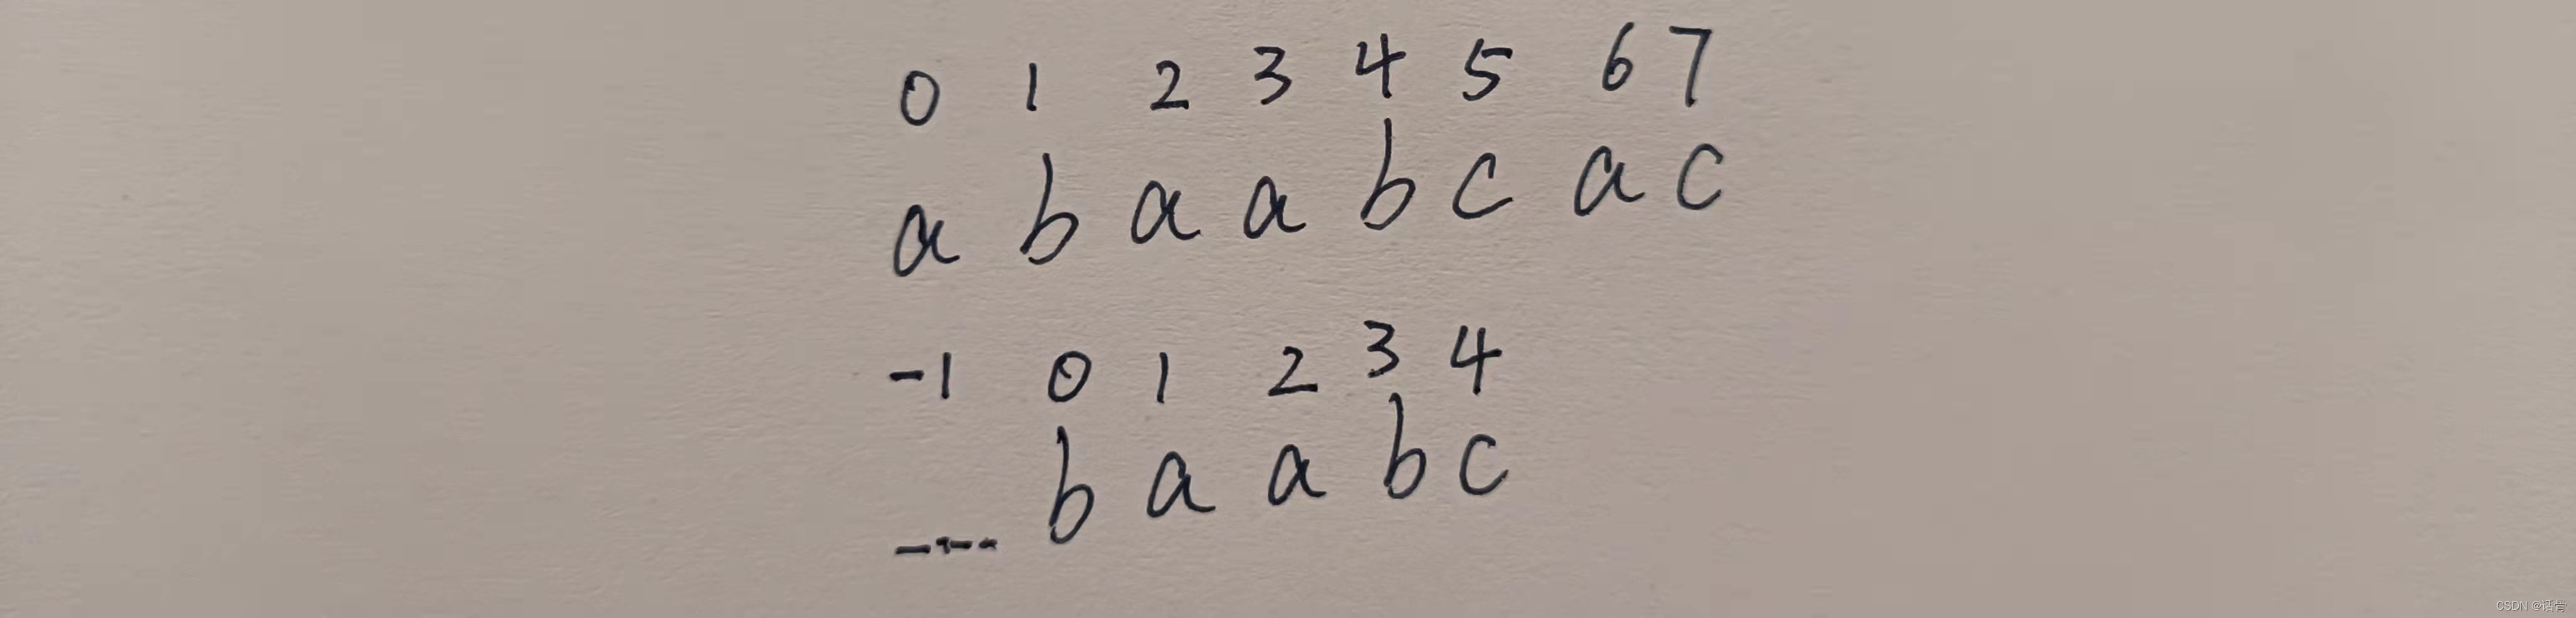 0 1 2 3 4 5 6 7
a b a a b c a c
-1 0 1 2 3 4
---- b a a b c
CSDN @话骨